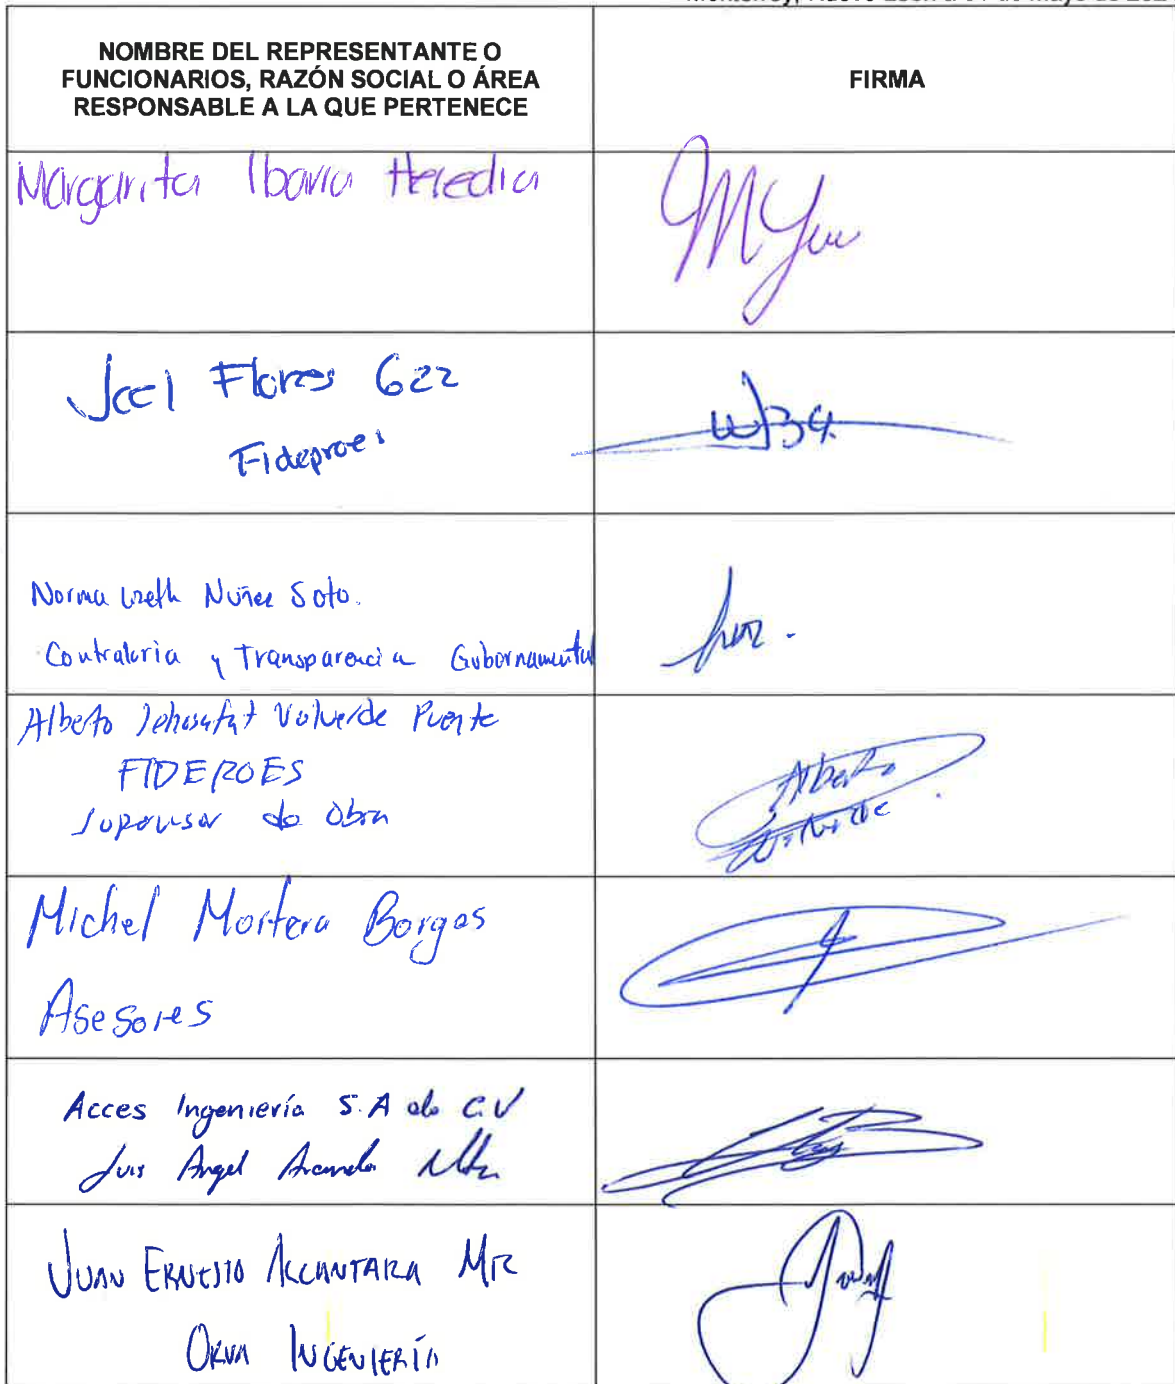 NOMBRE DEL REPRESENTANTE O
FUNCIONARIOS, RAZÓN SOCIAL O ÁREA
RESPONSABLE A LA QUE PERTENECE
FIRMA
Margarita Ibarra Heredia
Joel Flores
Fideproes
Norma Nuñez Soto.
Contraloria y Transparencia Gubernamental
Alberto Valverde Puente
FIDEPROES
Supervisor de Obra
Alberto
Valverde
Michel Mortera Borges
Asesores
Acces Ingeniería S.A de C.V
Luis Angel
JUAN ERNESTO ALCANTARA
INGENIERÍA